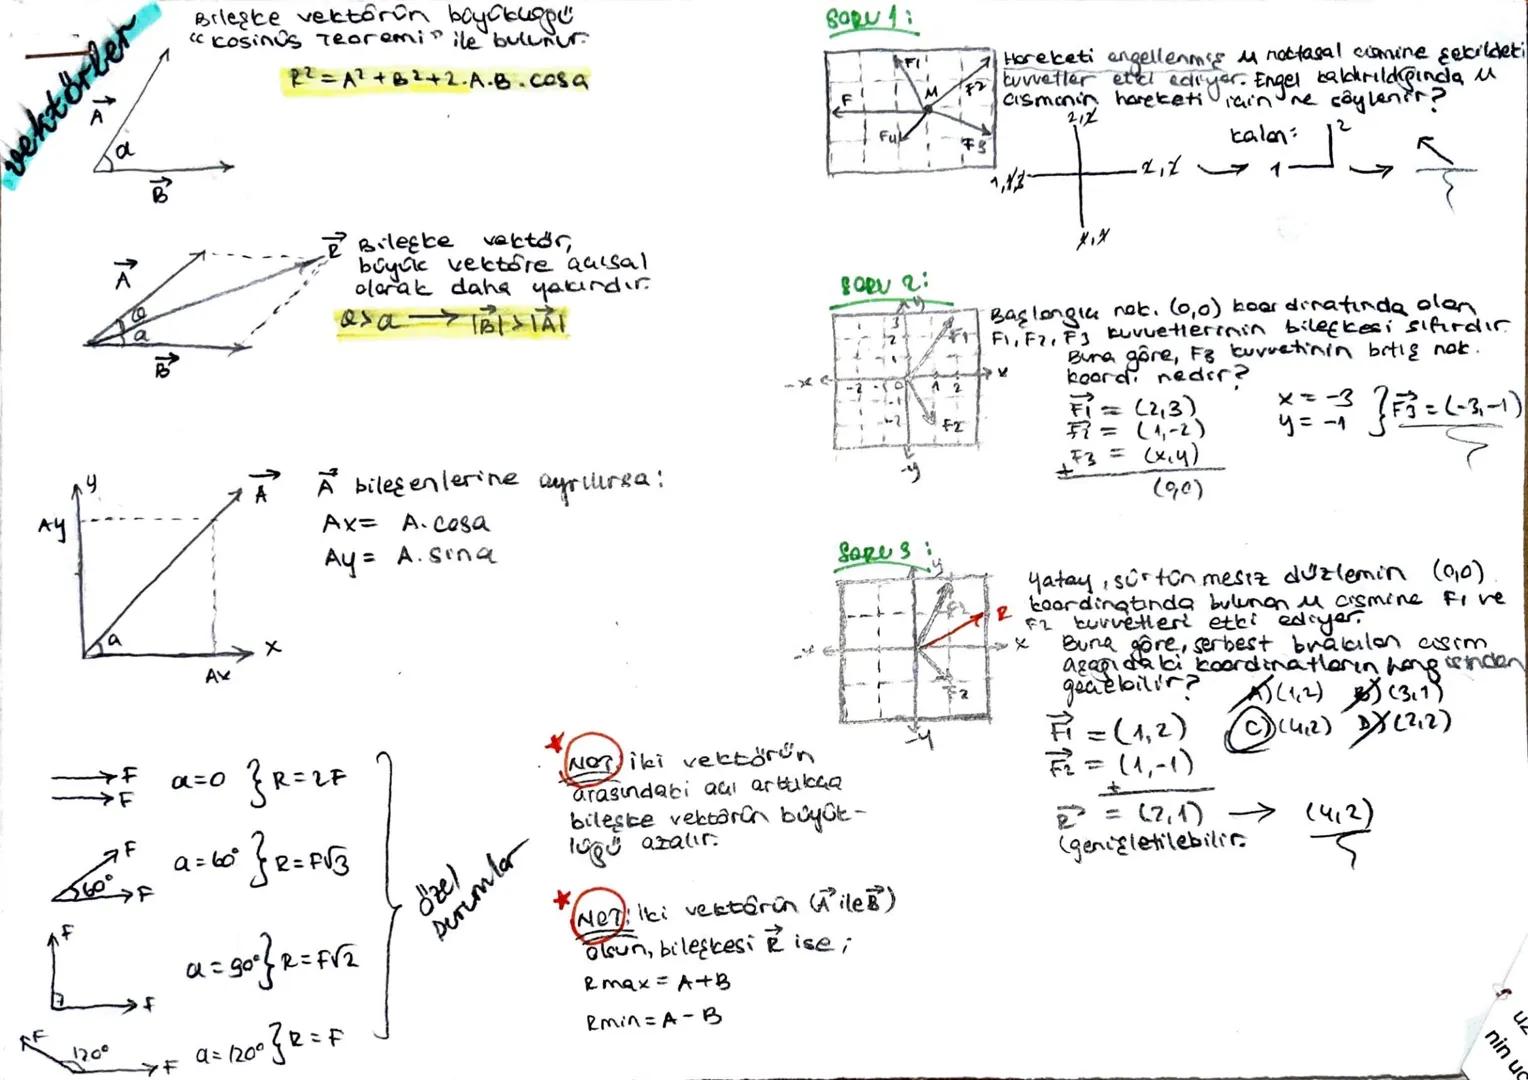 vektörler
Bileşke vektörün büyüklüğü
"kosinüs Teoremi" ile bulunur.
R² = A² + B² + 2.A.B.cosa
A
a
B
R
A
θ
a
B
Bileşke vektör,
büyük vektöre açısal
olarak daha yakındır.
θ>a → |B|>|A|
y
A
Ay
a
x
Ax
A bileşenlerine ayrılırsa:
Ax= A.cosa
Ay= A.sina
F
F
a=0 } R=2F
F
60°
F
a=60° } R=F√3
F
F
a=90° } R=F√2
F
120°
F
a=120° } R=F
özel
Durumlar
NOT: iki vektörün
arasındaki açı arttıkça
bileşke vektörün büyük-
lüğü azalır.
NOT: iki vektörün (A ile B)
olsun, bileşkesi R ise;
Rmax = A+B
Rmin = A-B
SORU 1:
F1
F2
M
F
F4
F3
Hareketi engellenmiş M noktasal cismine şekildeki
kuvvetler etki ediyor. Engel kaldırıldığında M
cisminin hareketi için ne söylenir?
kalan:
2
1
SORU 2:
y
3
2
1
F1
-x
-2 -1 0 1 2
x
-1
-2
F2
-y
Başlangıç nok. (0,0) koordinatında olan
F1, F2, F3 kuvvetlerinin bileşkesi sıfırdır.
Buna göre, F3 kuvvetinin bitiş nok.
koord. nedir?
F1 = (2,3)
F2 = (1,-2)
F3 = (x,y)
+
(0,0)
x = -3
y = -1
} F3 = (-3,-1)
SORU 3:
y
R
-x
x
F2
-y
Yatay, sürtünmesiz düzlemin (0,0)
koordinatında bulunan M cismine F1 ve
F2 kuvvetleri etki ediyor.
Buna göre, serbest bırakılan cisim
aşağıdaki koordinatların hangisinden
geçebilir?
A) (1,2) B) (3,1)
C) (4,2) D) (2,2)
F1 = (1,2)
F2 = (1,-1)
+
R = (2,1) → (4,2)
(genişletilebilir.
nin